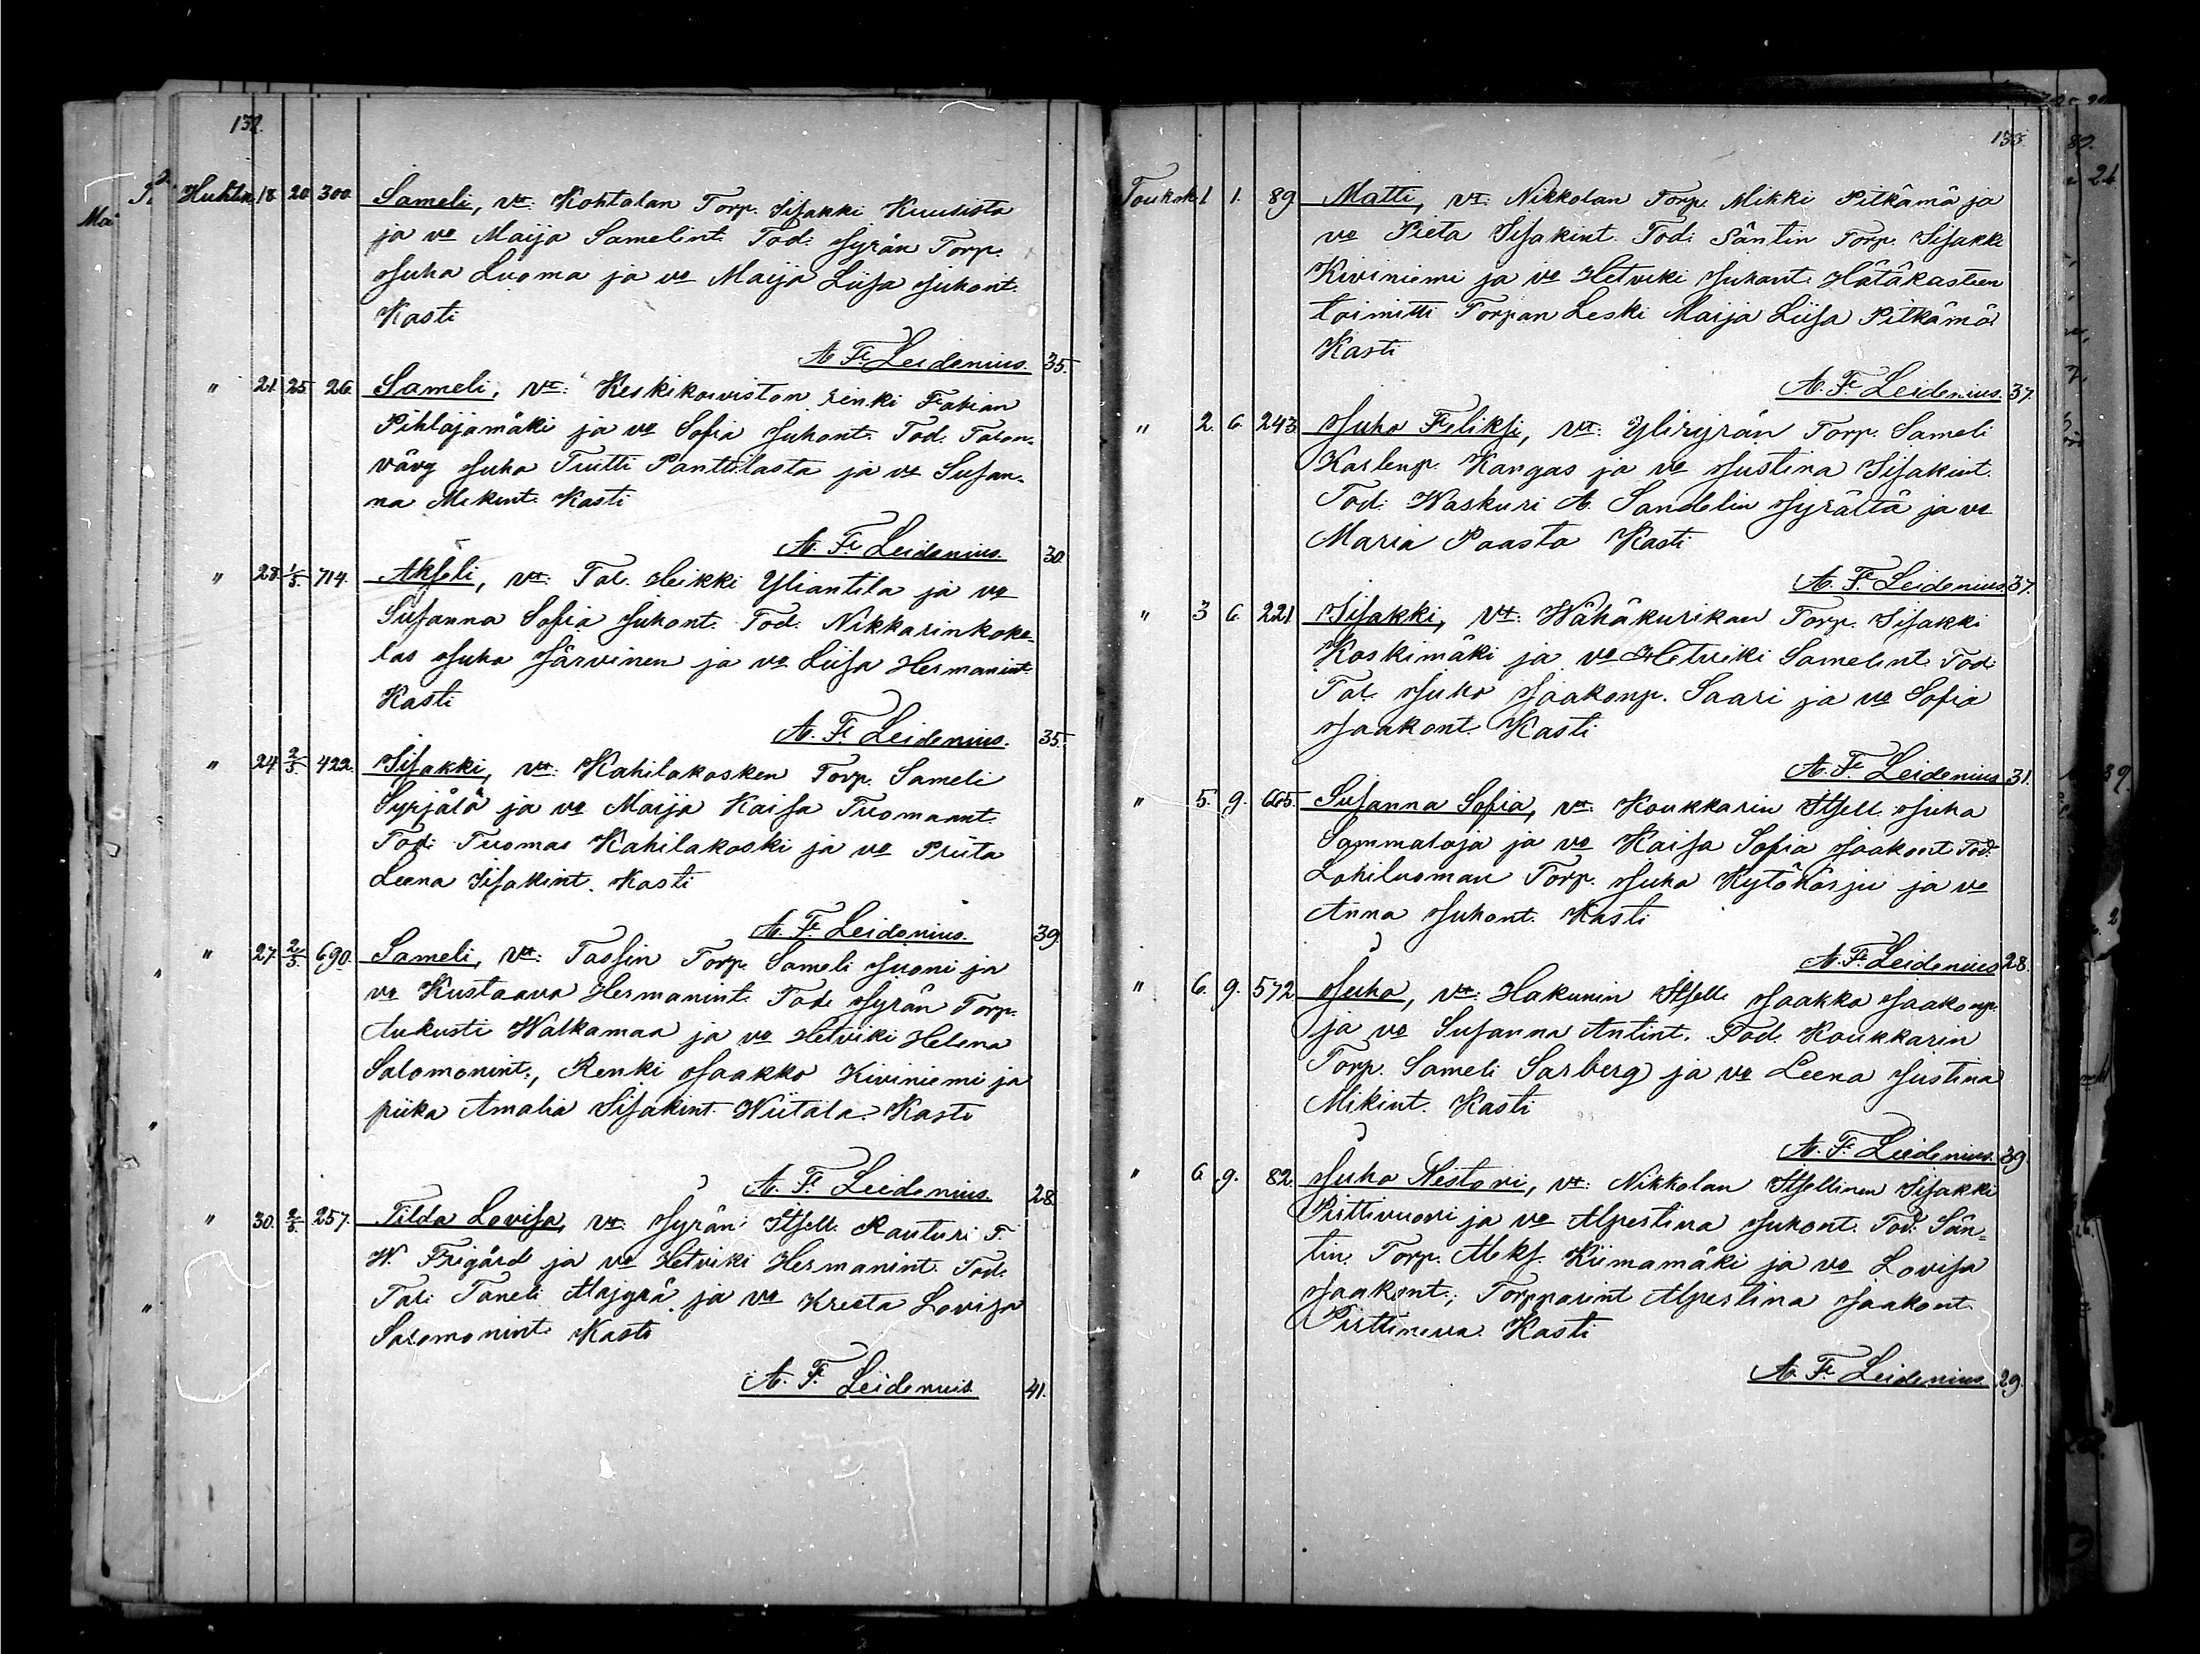 132.
Huhtik 18 20 300. Sameli, vt: Kohtalan Torp. Iisakki Kuusisto
ja vo Maija Samelint. Tod: Jyrän Torp.
Juha Luoma ja vo Maija Liisa Juhont.
Kasti
A. F. Leidenius. 35.
" 21 25 26. Sameli, vt: Keskikoiviston renki Fabian
Pihlajamäki ja vo Sofia Juhont. Tod. Talon-
vävy Juho Tritti Panttilasta ja vo Susan-
na Mikint. Kasti
A. F. Leidenius. 30.
" 23. 1/5 714. Akseli, vt: Tal. Heikki Yliantila ja vo
Susanna Sofia Juhont. Tod. Nikkarinkoke-
las Juho Järvinen ja vo Liisa Hermanint.
Kasti
A. F. Leidenius. 35.
" 24 2/5. 422. Iisakki, vt: Kahilakosken Torp. Sameli
Syrjälä ja vo Maija Kaisa Tuomaant.
Tod: Tuomas Kahilakoski ja vo Priita
Leena Iisakint. Kasti
A. F. Leidenius. 39.
" 27. 2/5. 690. Sameli, vt: Tassin Torp. Sameli Juoni ja
vo Kustaava Hermanint. Tod. Jyrän Torp.
Aukusti Walkamaa ja vo Hetviki Helena
Salomonint., Renki Jaakko Kiviniemi ja
piika Amalia Iisakint. Wiitala. Kasti
A. F. Leidenius. 28.
" 30. 2/5. 257. Tilda Lovisa, vt: Jyrän Itsell. Rauturi F.
W. Frigård ja vo Hetviki Hermanint. Tod.
Tal: Taneli Alajyrä ja vo Kreeta Lovisa
Salomonint. Kasti
A. F. Leidenius. 41.
133.
Toukok. 1 1. 89. Matti, vt: Nikkolan Torp. Mikki Pitkämä ja
vo Pieta Iisakint. Tod: Säntin Torp. Iisakki
Kiviniemi ja vo Hetviki Juhont. Hätäkasteen
toimitti Torpan Leski Maija Liisa Pitkämä
Kasti
A. F. Leidenius. 37.
" 2. 6. 243. Juho Feliksi, vt: Yliryrän Torp. Sameli
Karlenp. Kangas ja vo Justina Iisakint.
Tod: Waskuri A. Sandelin Jyrältä ja vo
Maria Paasto Kasti
A. F. Leidenius. 37.
" 3 6. 221 Iisakki, vt: Wähäkurikan Torp. Iisakki
Koskimäki ja vo Hetviki Samelint. Tod:
Tal. Juho Jaakonp. Saari ja vo Sofia
Jaakont. Kasti
A. F. Leidenius. 31.
" 5. 9. 665. Susanna Sofia, vt: Koukkarin Itsell. Juha
Sammaloja ja vo Kaisa Sofia Jaakont. Tod.
Lohiluoman Torp. Juha Kytökorju ja vo
Anna Juhont. Kasti
A. F. Leidenius 28.
" 6. 9. 572. Juho, vt: Hakunin Itsell. Jaakko Jaakonp.
ja vo Susanna Antint. Tod. Koukkarin
Torp. Sameli Sarberg ja vo Leena Justina
Mikint. Kasti
A. F. Leidenius. 39.
" 6. 9. 82. Juho Nestori, vt: Nikkolan Itsellinen Iisakki
Pirttivuori ja vo Alpertina Juhont. Tod. Sän-
tin Torp. Aleks. Kiimamäki ja vo Lovisa
Jaakont.; Torpparint. Alpertina Jaakont.
Pirttineva. Kasti
A. F. Leidenius 29.